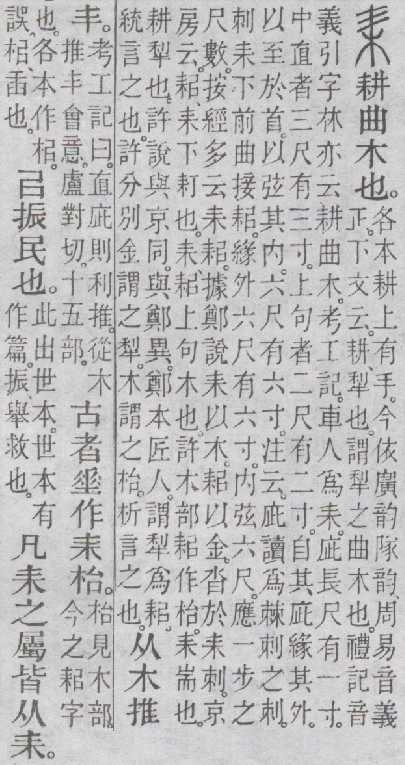 耒 耕曲木也。各本耕上有手。今依廣韵隊韵、周易音義
正。下文云。耕、犂也。謂犂之曲木也。禮記音
義引字林亦云耕曲木。考工記。車人爲耒。庛長尺有一寸。
中直者三尺有三寸。上句者二尺有二寸。自其庛緣其外。
以至於首。以弦其內。六尺有六寸。注云。庛讀爲棘刺之刺。
刺耒下前曲接耜。緣外六尺有六寸。內弦六尺。應一步之
尺數。按經多云耒耜。據鄭說耒以木。耜以金。沓於耒刺。京
房云。耜、耒下耓也。耒、耜上句木也。許木部耜作枱。耒耑也。
耕犂也。許說與京同。與鄭異。鄭本匠人。謂犂爲耜。
統言之也。許分別金謂之犂。木謂之枱。析言之也。
从木推
丰。考工記曰。直庛則利推。從木
推丰會意。盧對切。十五部。
古者垂作耒枱。枱見木部。
今之耜字
也。各本作梠。
誤。梠、臿也。
㠯振民也。此出世本。世本有
作篇。振、舉救也。
凡耒之屬皆从耒。